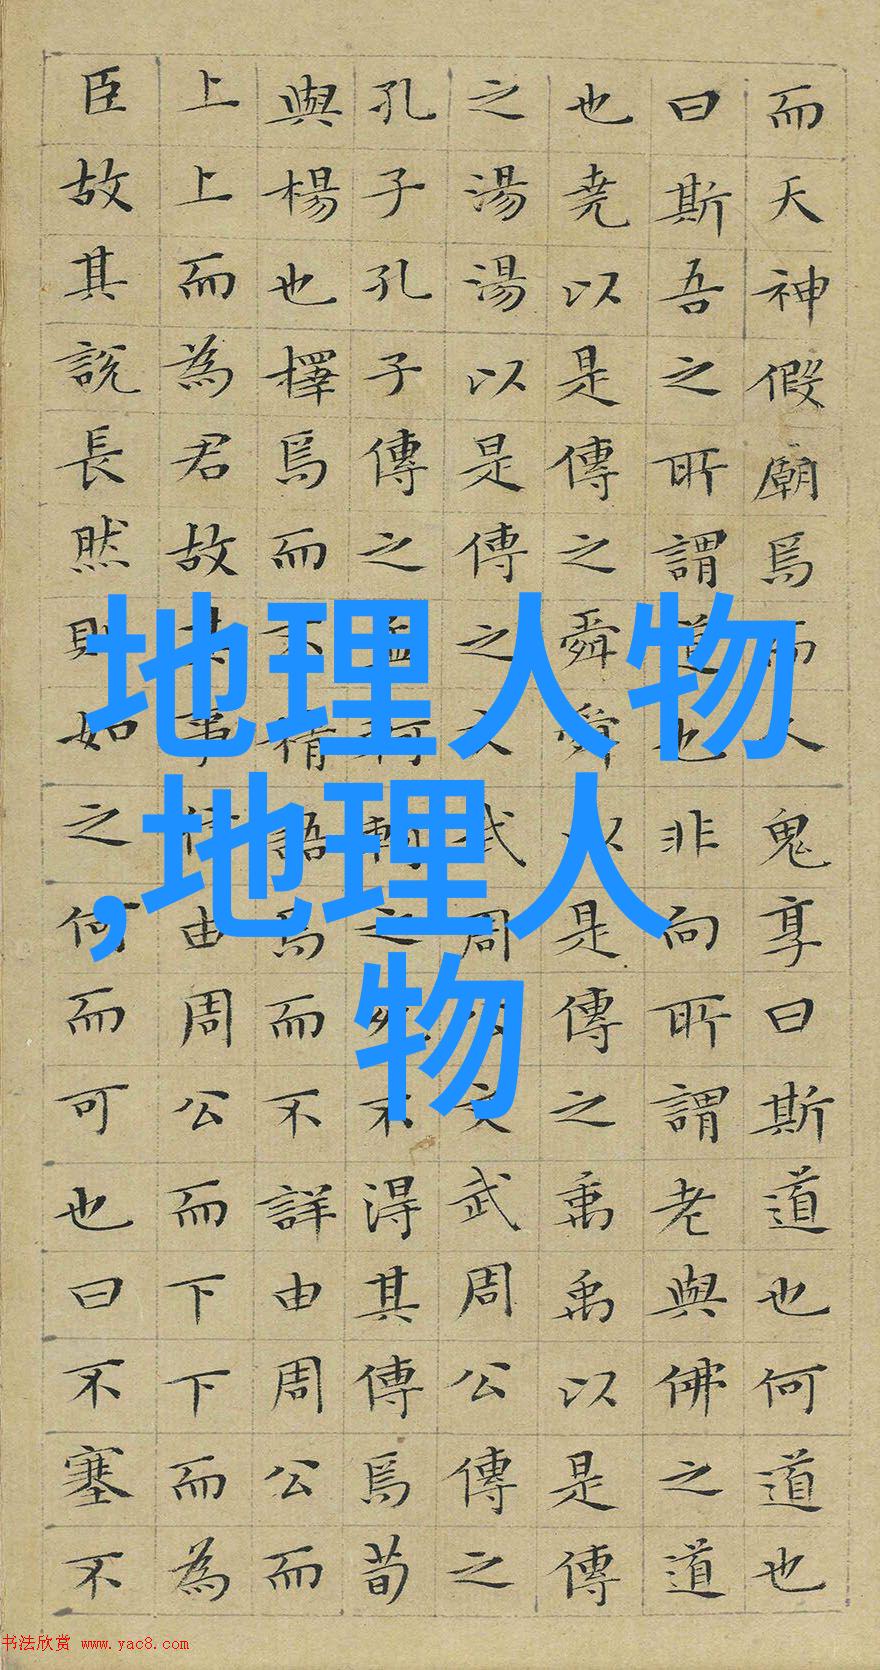 而天神假廟焉而人鬼享曰斯道也何道也
曰斯吾之所謂道也非向所謂老與佛之道
也堯以是傳之舜舜以是傳之禹禹以是傳
之湯湯以是傳之文武周公文武周公傳之
孔子孔子傳之孟軻軻之死不得其傳焉荀
與楊也擇焉而不精語焉而不詳由周公而
上上而為君故其事行由周公而下下而為
臣故其說長然則如之何而可也曰不塞不
地理人物
,地理人
物
书法欣赏 www.yac8.com